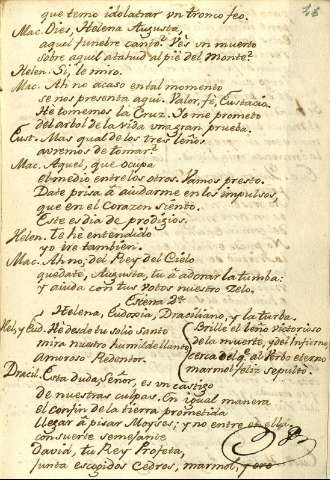 que temo idolatrar vn tronco feo.
Mac. Dies, Helena Augusta,
aquel funebre canto? Vès vn muerto
sobre aquel atahud al piè del monte?
Helen. Si, le miro.
Mac. Ah no acaso en tal momento
se nos presenta aqui. Valor, fè, Eustacio.
He tomemos la Cruz. Io me prometo
del arbol de la vida vna gran prueba.
Eust. Mas qual de los tres leños
avremos de tomar?
Mac. Aquel, que ocupa
el medio entre los otros. Vamos presto.
Date prisa à aiudarme en los impulsos,
que en el Corazen siento.
Este es dia de prodigios.
Helen. te he entendido
y o ire tambien.
Mac. Ah no; del Rey del Cielo
quedate, Augusta, tu à adorar la tumba:
y aiuda con tus votos nuestro zelo.
Escena 2ª
Helena, Eudoxia, Draciliano, y la turba.
Hel, y Eud. He desde tu solio Santo
mira nuestro humilde llanto
amoroso Redentor.
Brille el leño victorioso
de la muerte, y del Infierno,
cerca del q. al Verbo eterno
marmol feliz sepultò.
Dracil. Esta duda, Señor, es vn castigo
de nuestras culpas. En igual manera
el confin de la tierra prometida
llegar à pisar Moyses; y no entre en ella.
con suerte semejante
David, tu Rey Profeta,
junta escogidos Cedros, marmol, y oro